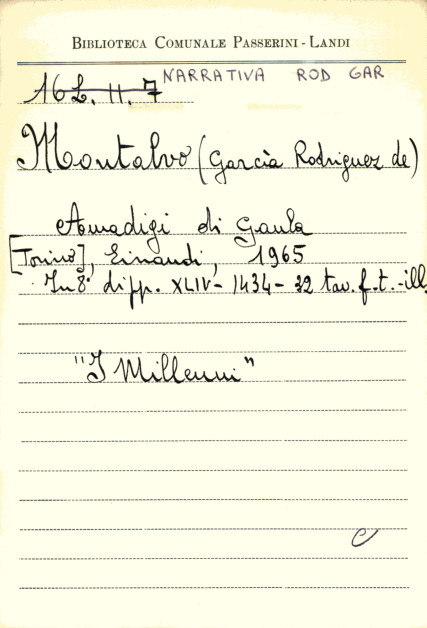 BIBLIOTECA COMUNALE PASSERINI - LANDI
16 L. 11. 7 NARRATIVA ROD GAR
Montalvo (Garcia Rodriguez de)
Amadigi di Gaula
[Torino], Einaudi, 1965
In 8° di pp. XLIV - 1434 - 32 tav. f. t. - ill.
"I Millenni"
C